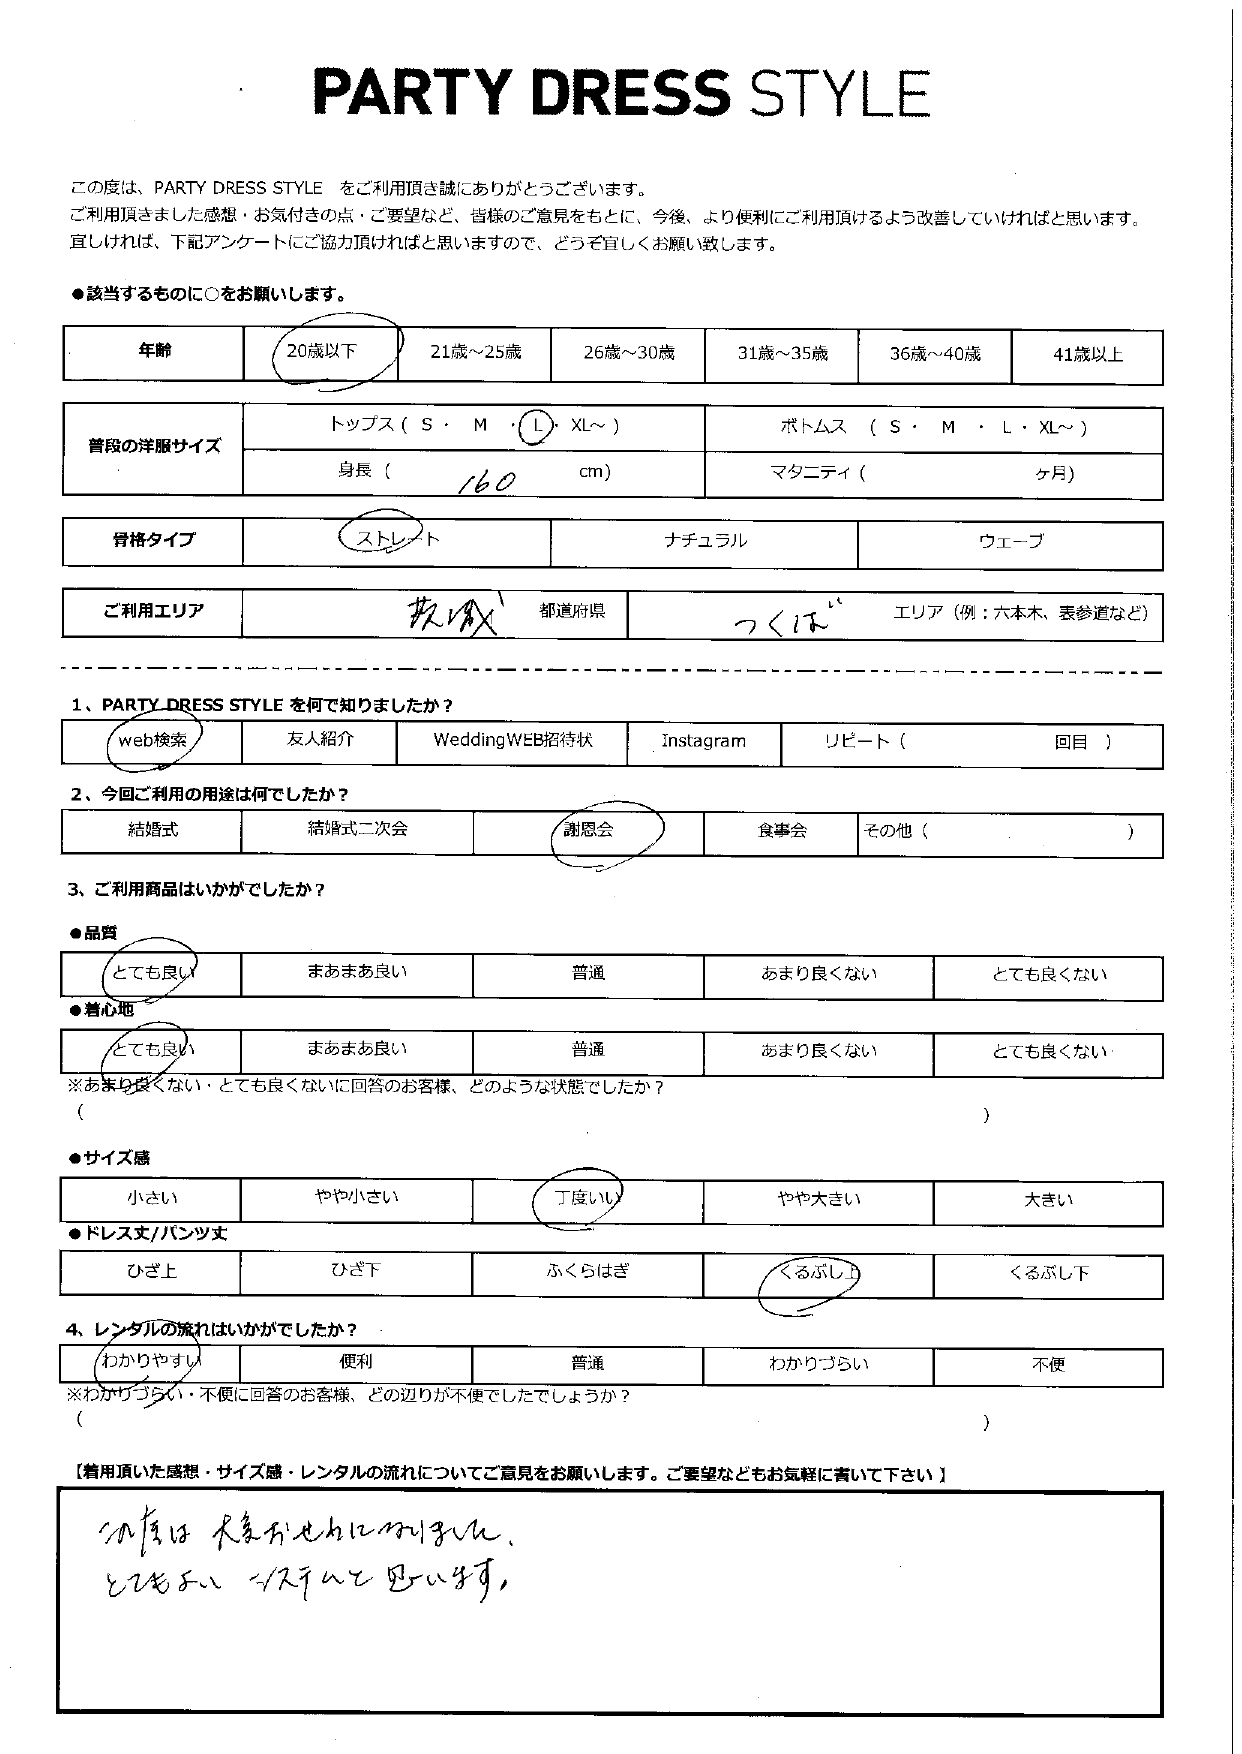 PARTY DRESS STYLE
この度は、PARTY DRESS STYLE をご利用頂き誠にありがとうございます。
ご利用頂きました感想・お気付きの点・ご要望など、皆様のご意見をもとに、今後、より便利にご利用頂けるよう改善していければと思います。
宜しければ、下記アンケートにご協力頂ければと思いますので、どうぞ宜しくお願い致します。
●該当するものに○をお願いします。
年齢 20歳以下 21歳～25歳 26歳～30歳 31歳～35歳 36歳～40歳 41歳以上
普段の洋服サイズ
トップス ( S ・ M ・ L ・ XL～ ) ボトムス ( S ・ M ・ L ・ XL～ )
身長 ( 160 cm) マタニティ ( ヶ月)
骨格タイプ ストレート ナチュラル ウェーブ
ご利用エリア 茨城 都道府県 つくば エリア（例：六本木、表参道など）
1、PARTY DRESS STYLE を何で知りましたか？
web検索 友人紹介 WeddingWEB招待状 Instagram リピート（ 回目 ）
2、今回ご利用の用途は何でしたか？
結婚式 結婚式二次会 謝恩会 食事会 その他（ ）
3、ご利用商品はいかがでしたか？
●品質
とても良い まあまあ良い 普通 あまり良くない とても良くない
●着心地
とても良い まあまあ良い 普通 あまり良くない とても良くない
※あまり良くない・とても良くないに回答のお客様、どのような状態でしたか？
( )
●サイズ感
小さい やや小さい 丁度いい やや大きい 大きい
●ドレス丈/パンツ丈
ひざ上 ひざ下 ふくらはぎ くるぶし上 くるぶし下
4、レンタルの流れはいかがでしたか？
わかりやすい 便利 普通 わかりづらい 不便
※わかりづらい・不便に回答のお客様、どの辺りが不便でしたでしょうか？
( )
【着用頂いた感想・サイズ感・レンタルの流れについてご意見をお願いします。ご要望などもお気軽に書いて下さい 】
この度は 大変おせわになりました、
とてもよい システムと思います。